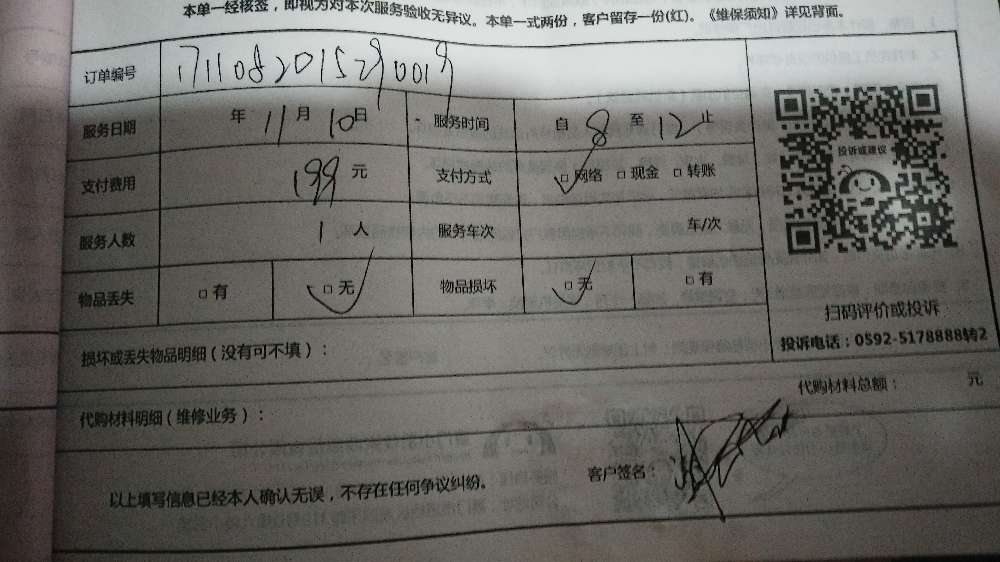 本单一经核签，即视为对本次服务验收无异议。本单一式两份，客户留存一份(红)。《维保须知》详见背面。
订单编号 1711082015290019
服务日期 年 11 月 10 日 服务时间 自 8 至 12 止
支付费用 199 元 支付方式 □网络 □现金 □转账
服务人数 1 人 服务车次 车/次
物品丢失 □有 □无 物品损坏 □无 □有
投诉或建议
扫码评价或投诉
投诉电话：0592-5178888转2
损坏或丢失物品明细（没有可不填）：
代购材料明细（维修业务）： 代购材料总额： 元
以上填写信息已经本人确认无误，不存在任何争议纠纷。 客户签名：